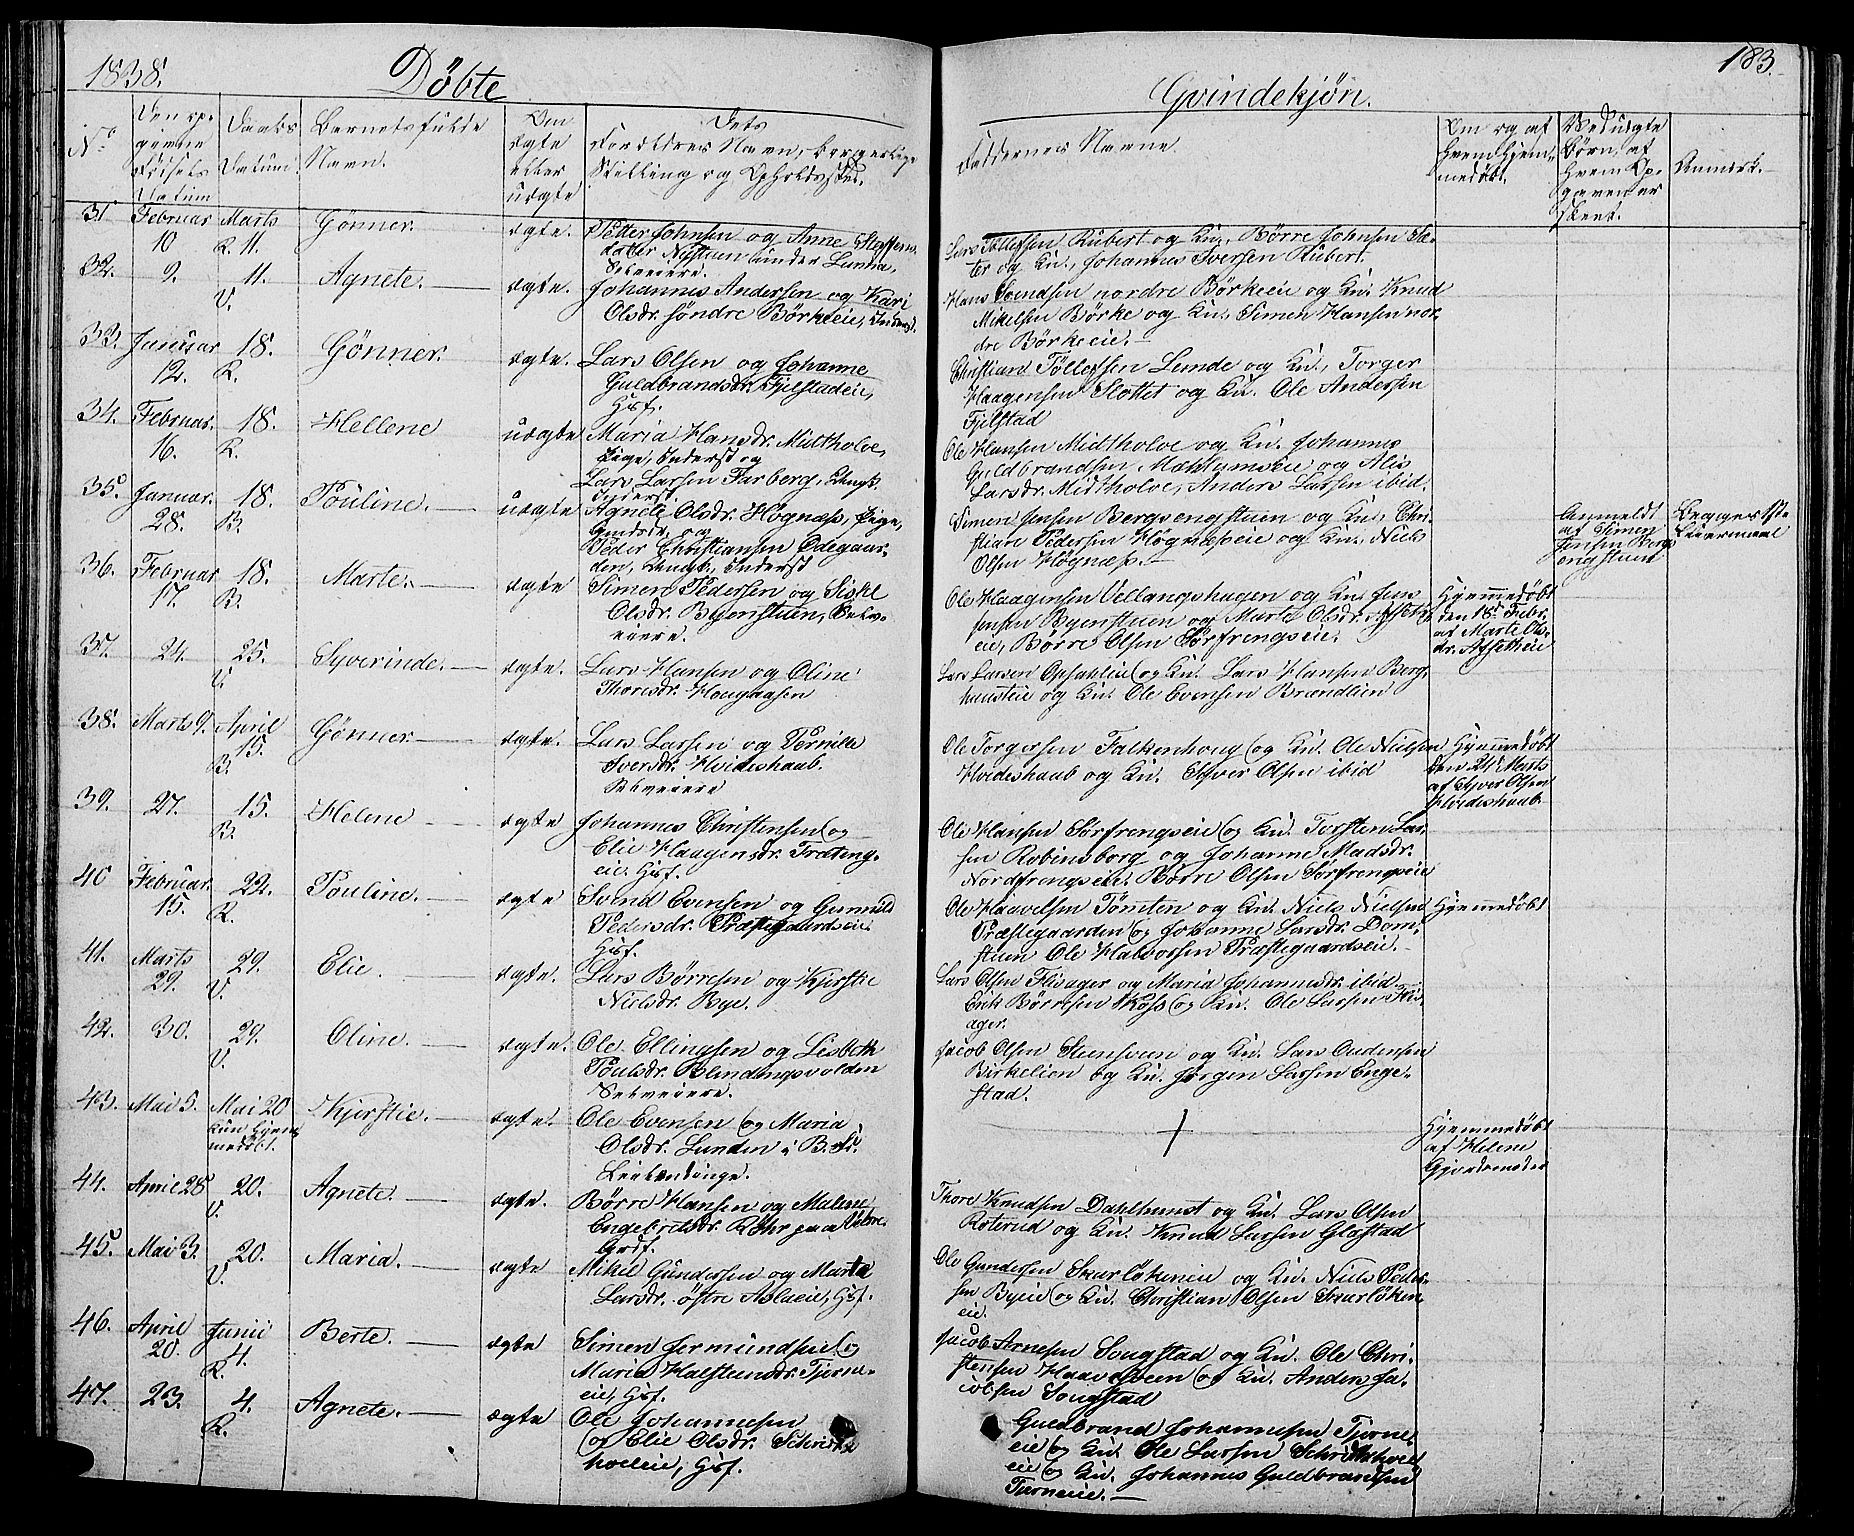 1838. Døbte
Qvindekjøn. 183.
No
Den opgivne Fødsels Datum
Daabs Datum
Barnets fulde Navn.
Om ægte eller uægte
Dets Forældres Navn, borgerlige Stilling og Opholdssted.
Faddernes Navne
Om og af hvem hjemmedøbt.
Ved uægte Børn, af hvem Opgaven er skeet.
Anmærk.
31 Februar 10 Marts R. 11. Gønner. ægte. Petter Johnsen og Anne Steffens-
datter Nystuen under Lunna,
Selveiere.
Lars Tollefsen Rubert og Ku., Børre Johnsen Sæ-
ter og Ku., Johannes Iversen Rubert.
32. 9. 11. V. Agnete. ægte. Johannes Andersen og Kari
Olsdr. søndre Børkeeie, Inderst.
Hans Svendsen nordre Børkeeie og Ku. Knud
Mikelsen Børke og Ku., Simen Hansen nor-
dre Børkeeie.
33. Januar 12. 18. R. Gønner. ægte. Lars Olsen og Johanne
Guldbrandsdr. Fjelstadeie,
Husf.
Christian Tollefsen Lunde og Ku., Torger
Haagensen Slottet og Ku. Ole Andersen
Fjelstad
34. Februar. 16. 18. R. Hellene uægte Maria Hansdr. Midtholve,
Pige, Inderst og
Lars Larsen Farberg, Ungk.
Inderst.
Ole Hansen Midtholve og Ku. Johannes
Guldbrandsen Mæhlumseie og Alis
Larsdr. Midtholve, Anders Larsen ibid.
35. Januar. 28. 18. B. Pouline. uægte Agnete Olsdr. Høgnæss, Pige,
og
Peder Christiansen Ødegaar-
den, Ungk., Inderst
Simen Jensen Bergsengstuen og Ku., Chri-
stian Pedersen Høgnæseie og Ku., Niels
Olsen Høgnæss.
Anmeldt
af Simen
Jensen Bergs-
engstuen
Begges 1ste
Leiermaal
36. Februar 17. 18. B. Marte. ægte Simen Pedersen og Siskel
Olsdr. Byenstuen, Selv-
eiere.
Ole Haagensen Vellangshagen og Ku. Jens
Jensen Byenstuen og Marte Olsdr. Afseth-
eie, Børre Olsen Sørfrengseie.
Hjemmedøbt
den 18d Febr.
af Marte Ols-
dr. Afsetheie
37. 24. 25. V. Syverinde. ægte. Lars Hansen og Oline
Thorsdr. Hougaasen
Lars Larsen Opsahleie og Ku. Lars Hansen Berg-
haugeie og Ku. Ole Evensen Brændlien
38. Marts 9. April 15. B. Gønner ægte. Lars Larsen og Pernille
Iversdr. Hvideshaab.
Selveiere
Ole Torgersen Falkenhoug og Ku. Ole Nielsen
Hvideshaab og Ku. Syver Olsen ibid
Hjemmedøbt
den 24d Marts
af Syver Olsen
Hvideshaab.
39. 27. 15. B. Helene ægte Johannes Christensen og
Elie Haagensdr. Fræteng-
eie. Husf.
Ole Hansen Sørfrengseie og Ku. Torsten Lar-
sen Robinsborg og Johanne Madsdr.
Nordfrengseie. Børre Olsen Sørfrengseie
40 Februar. 15. 22. R. Pouline. ægte Svend Evensen og Gunnild
Pedersdr. Præstegaardseie.
Husf.
Ole Haavelsen Tømten og Ku. Niels Nielsen
Præstegaarden og Johanne Larsdr. Dom-
stuen Ole Halvorsen Præstegaardseie.
Hjemmedøbt
41. Marts 29. 29. V. Elie. ægte. Lars Børresen og Kjerstie
Nielsdr. Bye.
Lars Olsen Flisager og Maria Johannesdr. ibid.
Erik Børresen Koss og Ku. Ole Larsen Flis-
ager.
42. 30. 29. V. Oline. ægte. Ole Ellingsen og Lisbeth
Poulsdr. Blendingsvolden
Selveiere.
Jacob Olsen Steensveen og Ku. Lars Audensen
Birkelien og Ku. Jørgen Larsen Enge-
stad.
43. Mai 5. Mai 20 kun hjem-
medøbt. Kjerstie. ægte. Ole Evensen og Maria
Olsdr. Lunden i B.
Hjemmedøbt
af Helene
Gjordemoder
44. April 28 20. V. Agnete. ægte. Børre Hansen og Malene
Engebretsdr. Røhr paa
Grdf.
Thore Knudsen Dahlhunst og Ku. Lars Olsen
Roterud og Ku. Knud Larsen Glæstad
45. Mai 3. 20. V. Maria. ægte Mikel Gundersen og Marte
Larsdr. østre Aslaeie, Husf.
Ole Gundersen Skurløkeneie og Ku. Niels Peder-
sen Byeie og Ku. Christian Olsen Skurløken-
eie.
46. April 20. Junii 4. R. Berte. ægte Simen Jermundsen og
Maria Halsteensdr. Tjerne-
eie, Husf.
Jacob Arnesen Sougstad og Ku. Ole Chri-
stensen Haavesveen og Ku. Anders Ja-
cobsen Sougstad
47. 23. 4. R. Agnete. ægte Ole Johannesen
og Elie Olsdr. Schrinde-
hveleie, Husf.
Guldbrand Johannesen Tjerne-
eie og Ku. Ole Larsen
eie og Ku. Johannes Guldbrandsen
Tjerneeie.